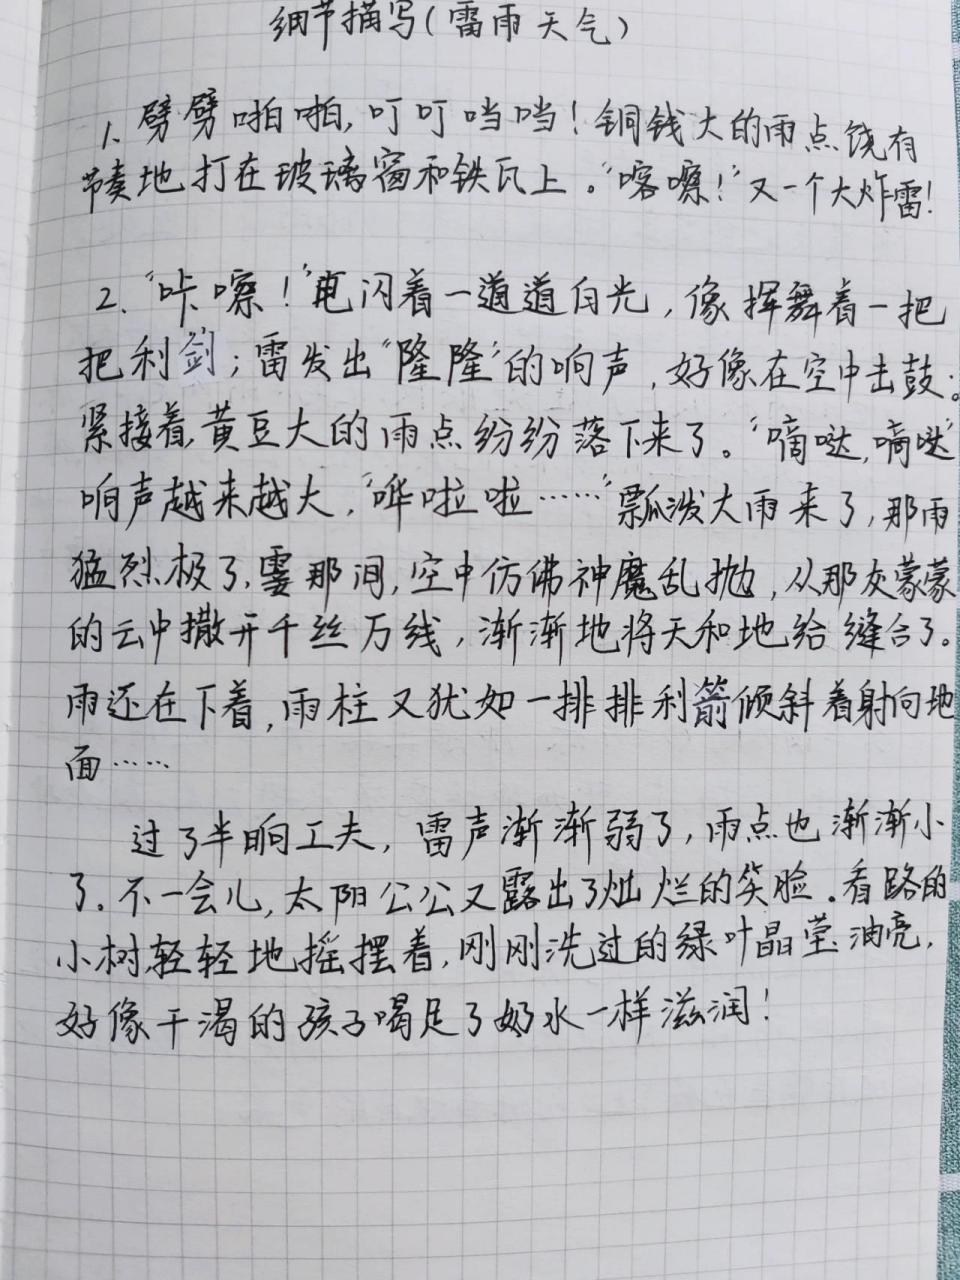 细节描写(雷雨天气)
1、劈劈啪啪,叮叮当当!铜钱大的雨点饶有
节奏地打在玻璃窗和铁瓦上。“喀嚓!”又一个大炸雷!
2、“咔嚓!”电闪着一道道白光,像挥舞着一把
把利剑;雷发出“隆隆”的响声,好像在空中击鼓。
紧接着,黄豆大的雨点纷纷落下来了。“嘀哒,嘀哒”
响声越来越大,“哗啦啦……”瓢泼大雨来了,那雨
猛烈极了,霎那间,空中仿佛神魔乱抛,从那灰蒙蒙
的云中撒开千丝万线,渐渐地将天和地给缝合了。
雨还在下着,雨柱又犹如一排排利箭倾斜着射向地
面……
过了半晌工夫,雷声渐渐弱了,雨点也渐渐小
了。不一会儿,太阳公公又露出了灿烂的笑脸。看路的
小树轻轻地摇摆着,刚刚洗过的绿叶晶莹油亮,
好像干渴的孩子喝足了奶水一样滋润!